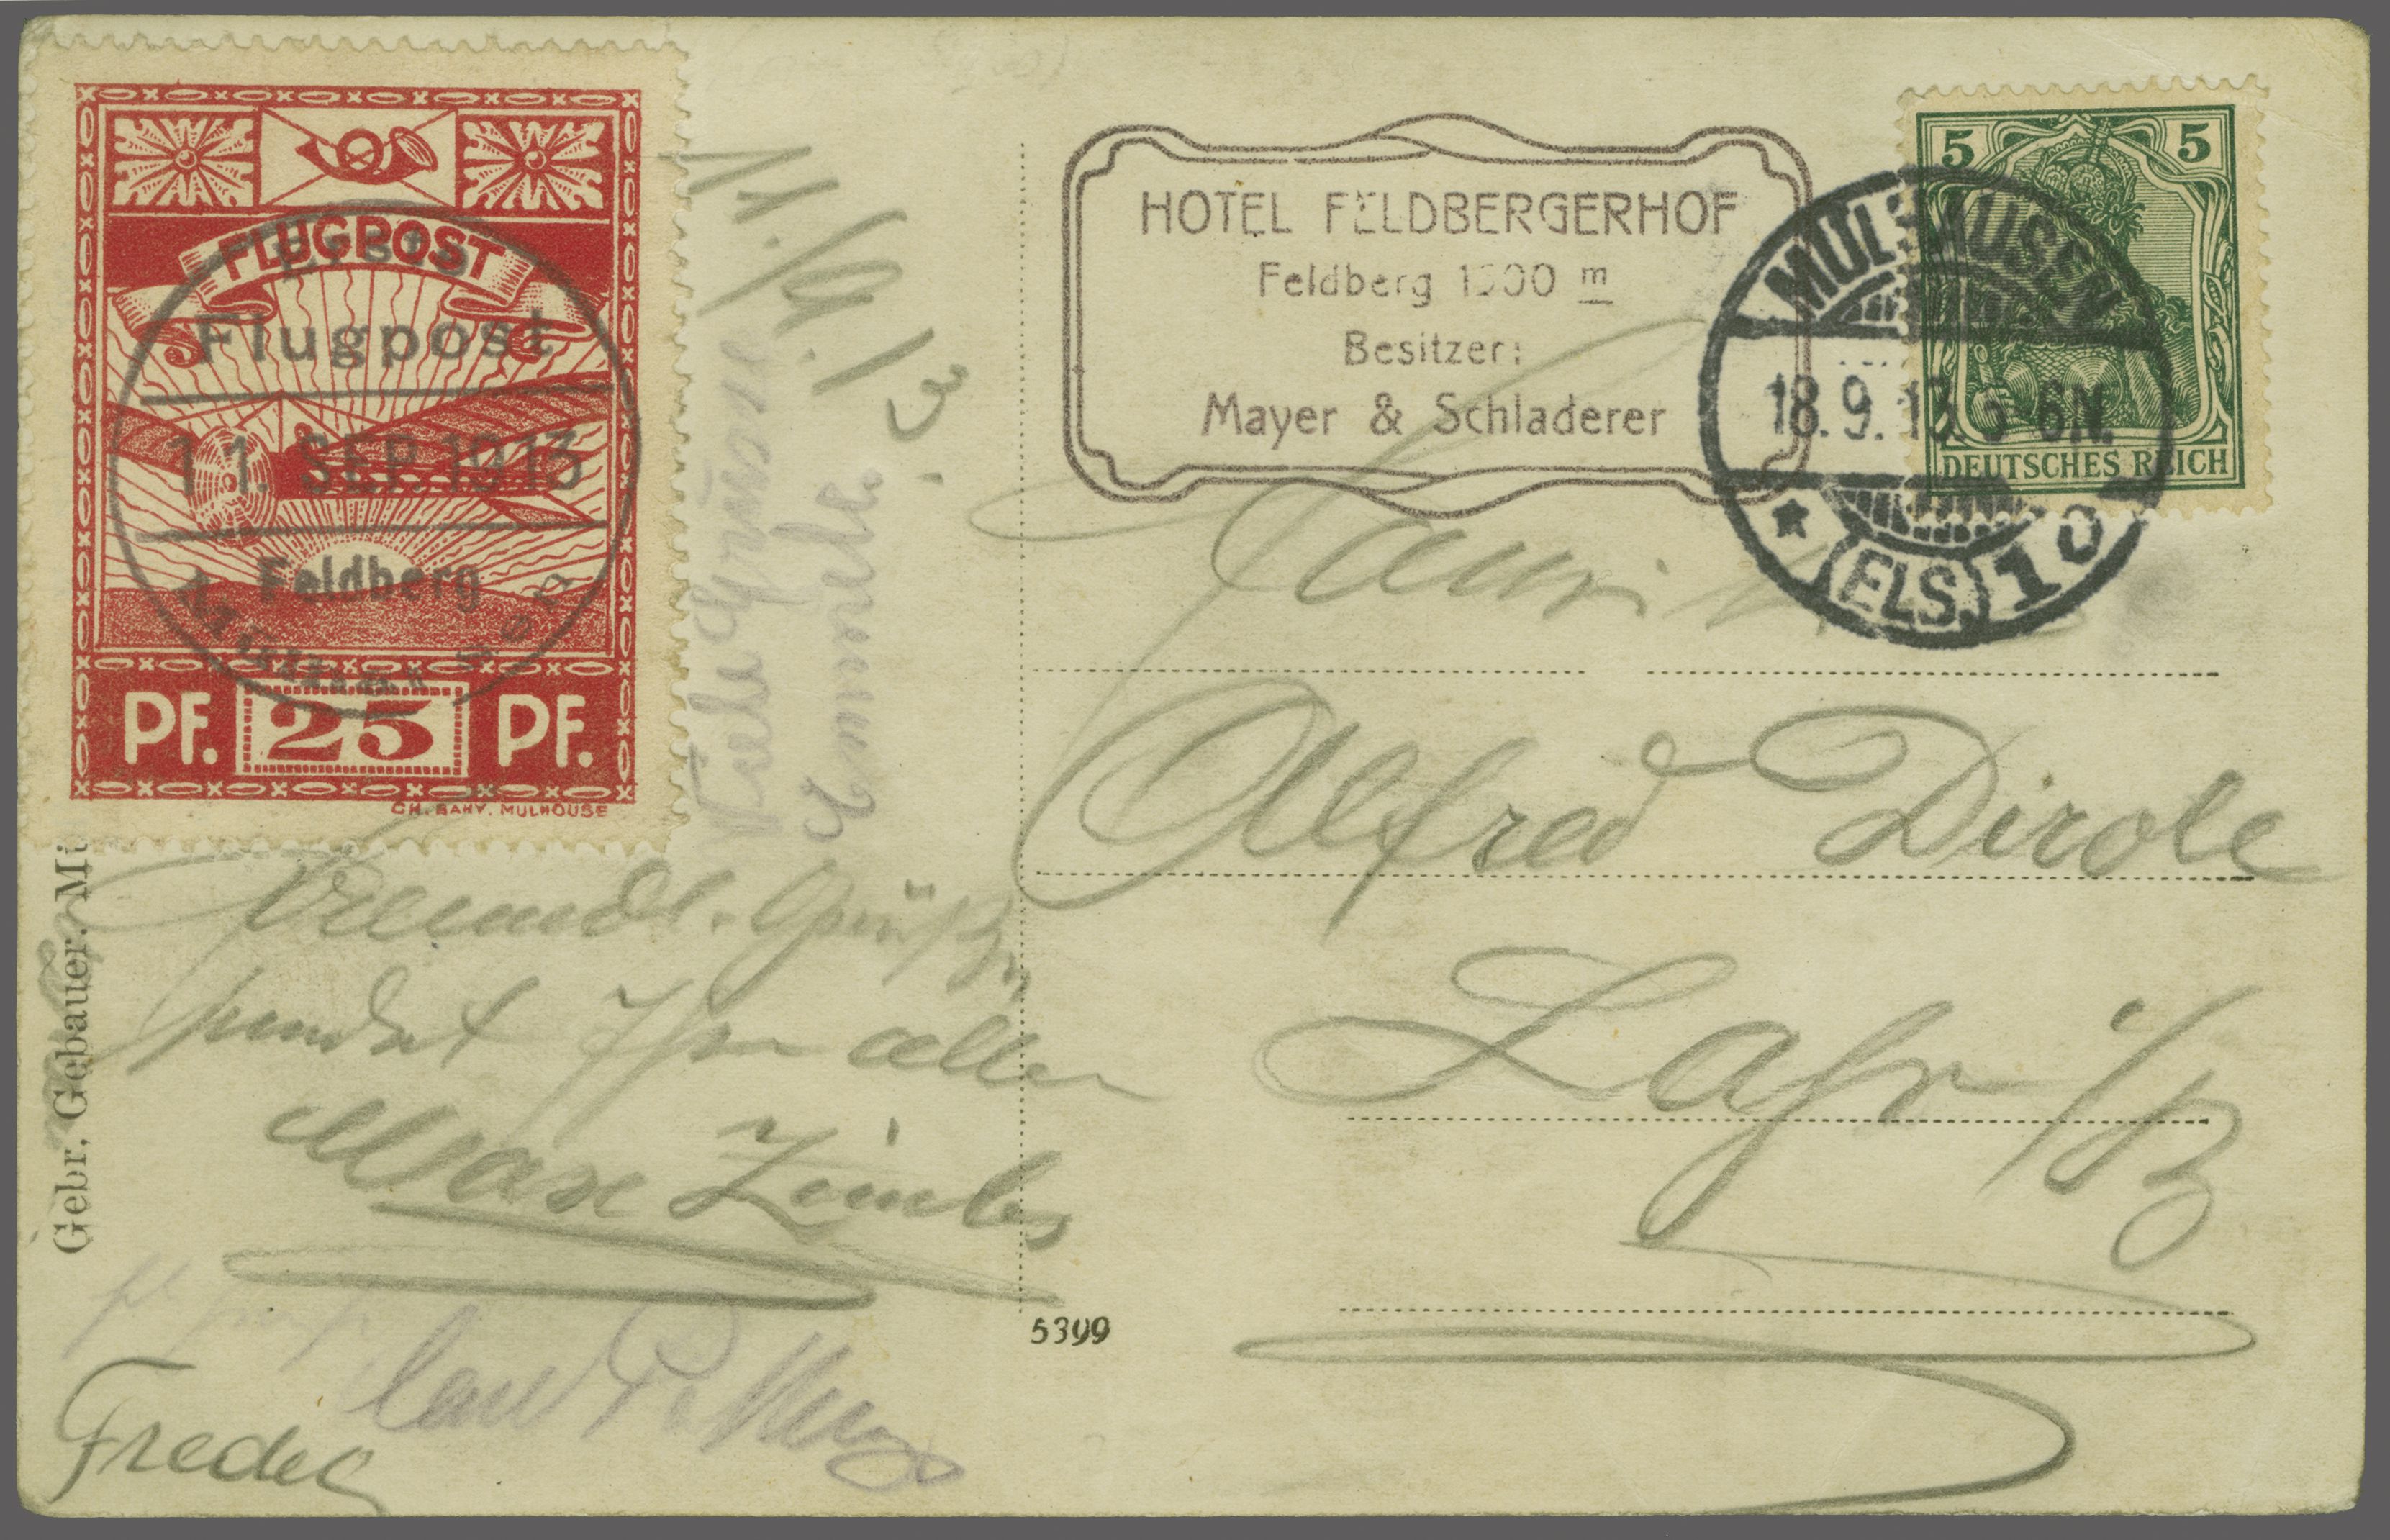 FLUGPOST
Erste
Flugpost
11. SEP. 1913
Feldberg
PF. 25 PF.
CH. BAHY. MULHOUSE
11./9.13.
Viele Grüsse
Emmele
HOTEL FELDBERGERHOF
Feldberg 1500 m
Besitzer:
Mayer & Schladerer
5 5
DEUTSCHES REICH
MÜLHAUSEN
18.9.13. 5-6N.
* (ELS.) 10
Alfred Dirole
Lahr i/B
Freundl. Grüße
sendet Ihr aller
Max
Gebr. Gebauer. Mü
5399
Carl
Fredes